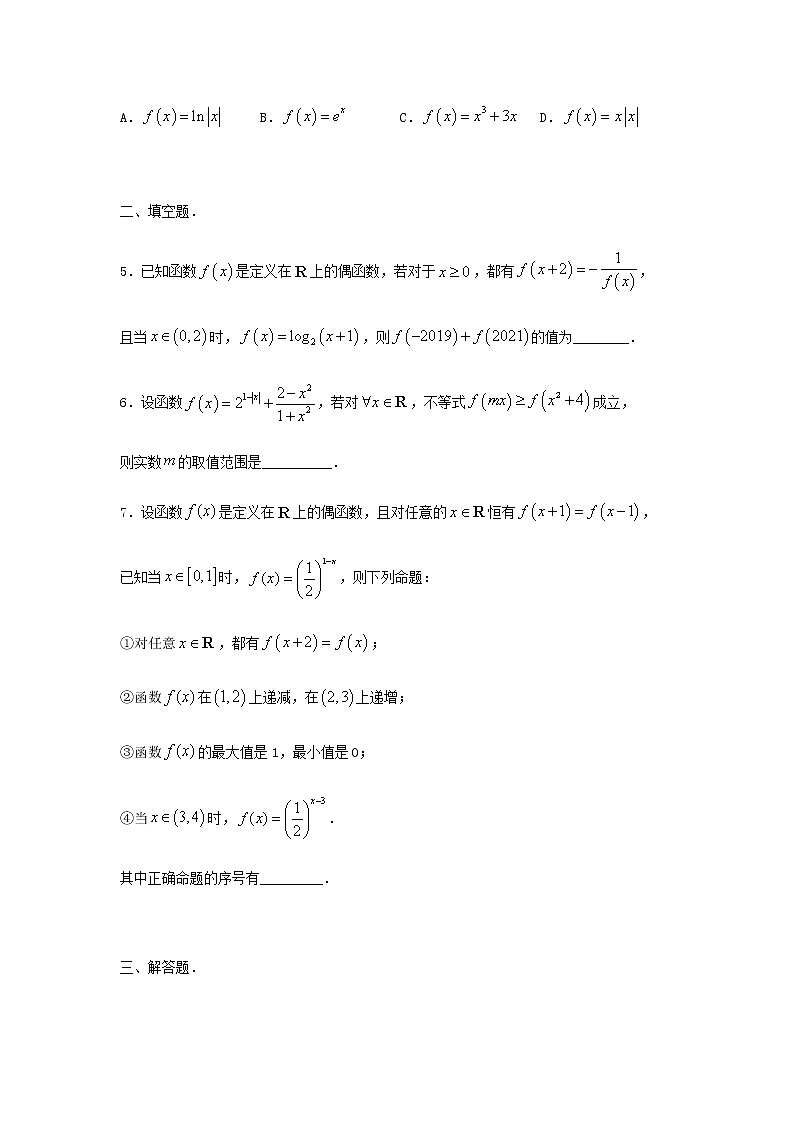 A. f(x)=ln|x| B. f(x)=e^x C. f(x)=x^3+3x D. f(x)=x|x|
二、填空题.
5.已知函数f(x)是定义在R上的偶函数,若对于x≥0,都有f(x+2)=-1/f(x),
且当x∈(0,2)时,f(x)=log₂(x+1),则f(-2019)+f(2021)的值为________.
6.设函数f(x)=2^(1-|x|)+(2-x^2)/(1+x^2),若对∀x∈R,不等式f(mx)≥f(x^2+4)成立,
则实数m的取值范围是__________.
7.设函数f(x)是定义在R上的偶函数,且对任意的x∈R恒有f(x+1)=f(x-1),
已知当x∈[0,1]时,f(x)=(1/2)^(1-x),则下列命题:
①对任意x∈R,都有f(x+2)=f(x);
②函数f(x)在(1,2)上递减,在(2,3)上递增;
③函数f(x)的最大值是1,最小值是0;
④当x∈(3,4)时,f(x)=(1/2)^(x-3).
其中正确命题的序号有_________.
三、解答题.